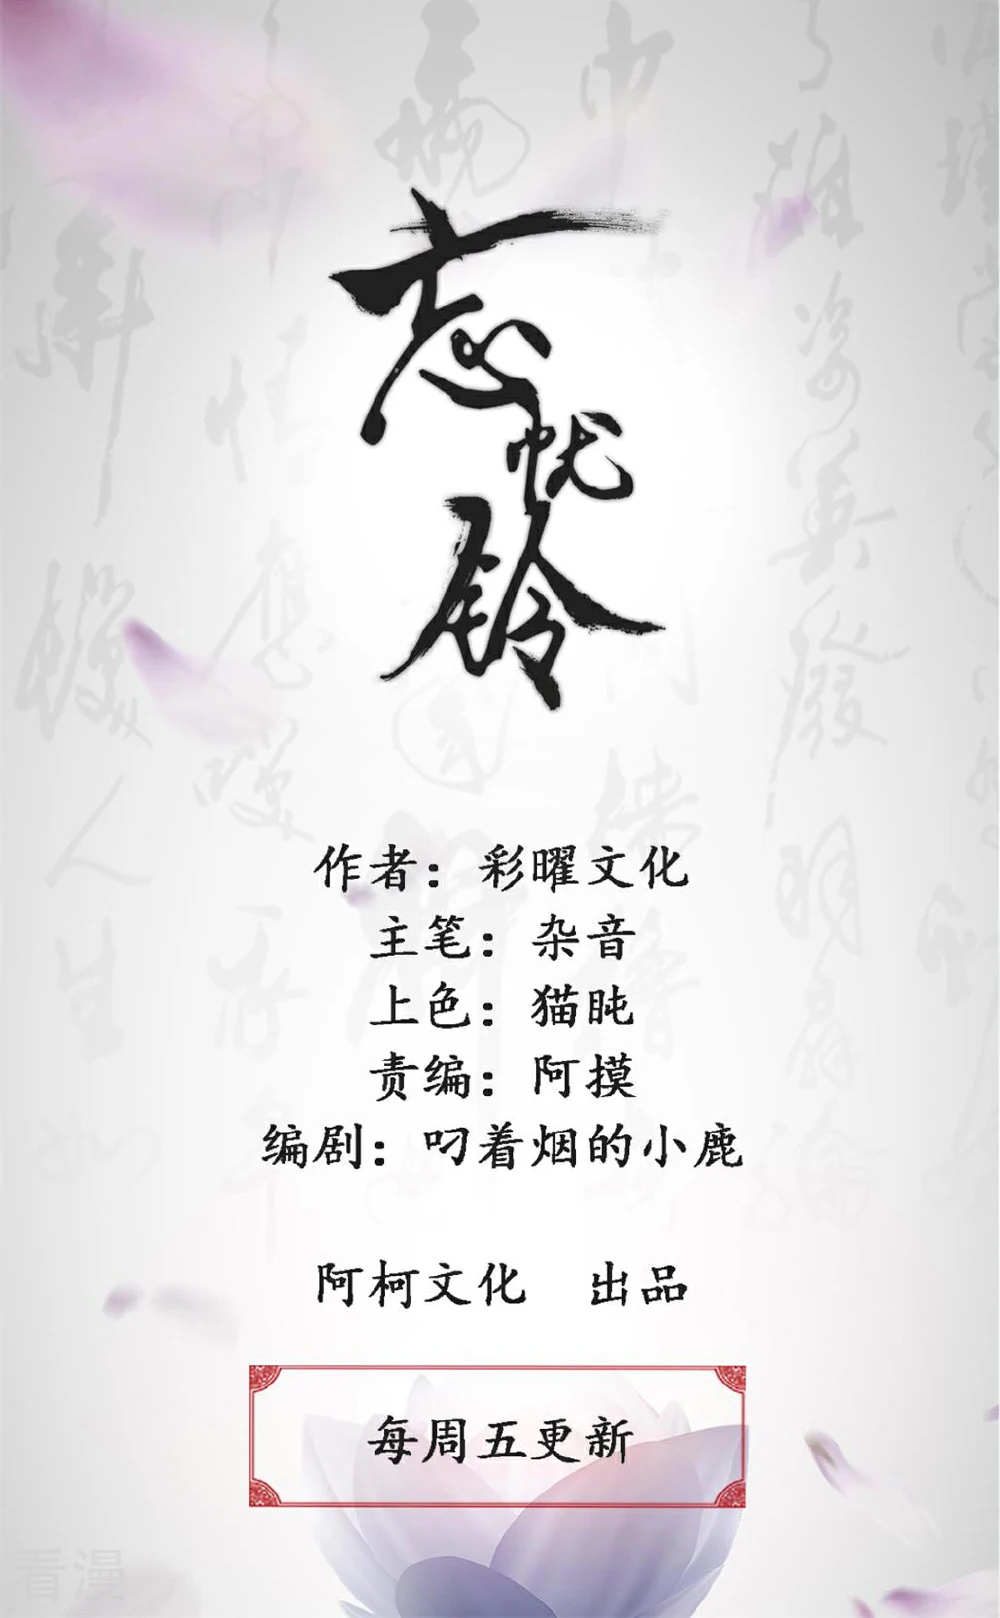 忘忧铃
作者：彩曜文化
主笔：杂音
上色：猫盹
责编：阿摸
编剧：叼着烟的小鹿
阿柯文化 出品
每周五更新
看漫